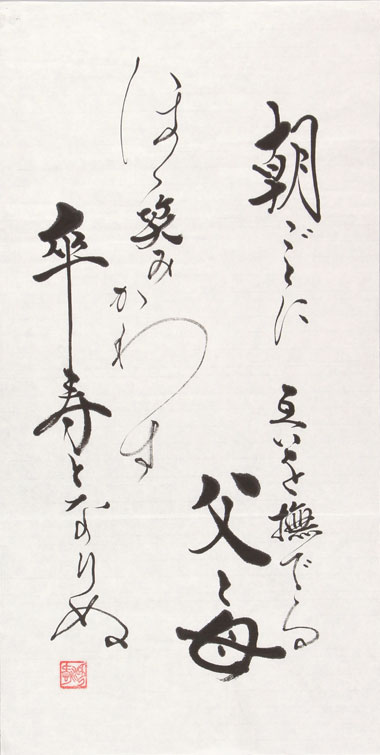 朝ごとに 互いを撫でる
父と母
ほゝ笑みかわす
卒寿となりぬ